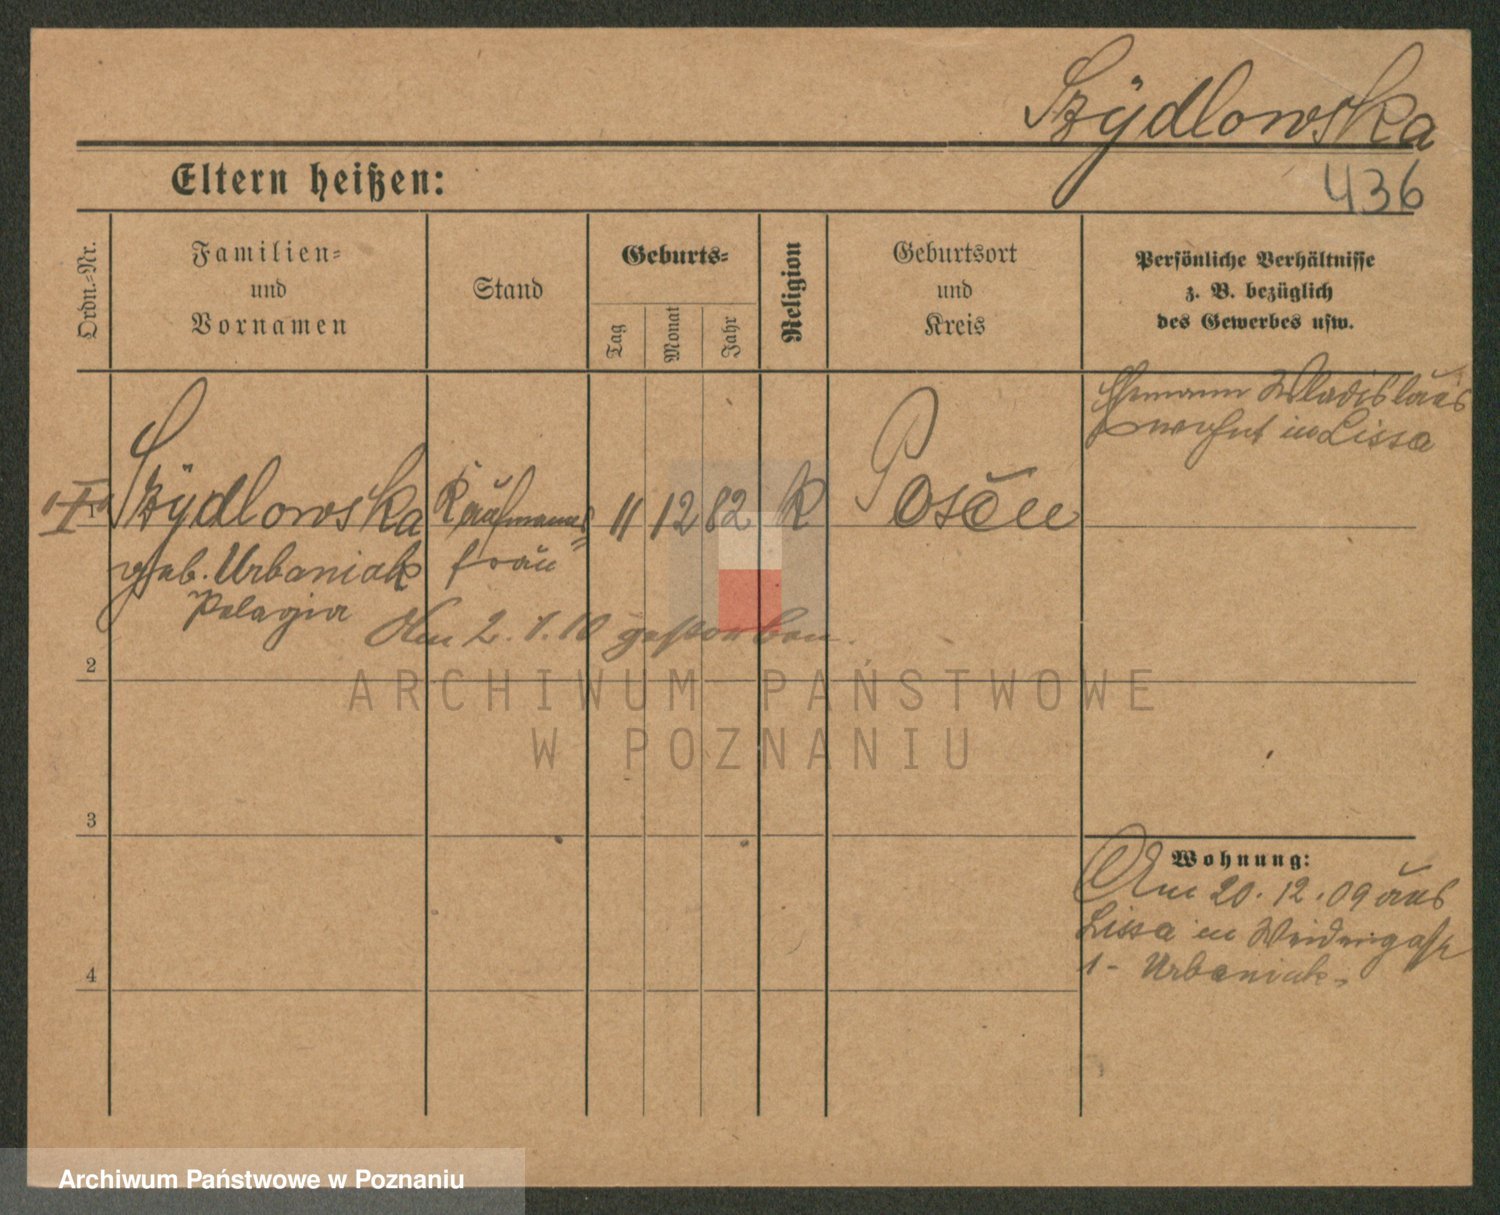 Szydlowska
436
Eltern heißen:
Ordn.-Nr.
Familien-
und
Vornamen
Stand
Geburts-
Tag
Monat
Jahr
Religion
Geburtsort
und
Kreis
Persönliche Verhältnisse
z. B. bezüglich
des Gewerbes usw.
1
Szydlowska
geb. Urbaniak
Pelagia
Kaufmanns
frau
11 12 82
K
Posen
Ehemann Wladislaus
wohnt in Lissa
Am 2.1.10 gestorben.
2
3
4
Wohnung:
Am 20.12.09 aus
Lissa in Weidengasse
1- Urbaniak-
ARCHIWUM PAŃSTWOWE
W POZNANIU
Archiwum Państwowe w Poznaniu